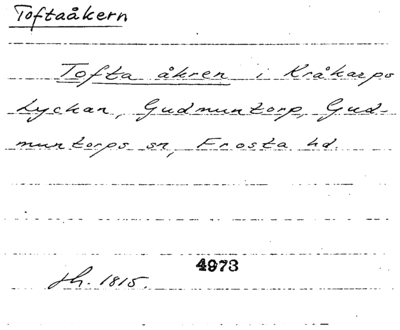 Toftaåkern
Tofta åkren i Kråkarps
Lyckan, Gudmuntorp, Gud-
muntorps sn, Frosta hd.
4973
sh. 1815.